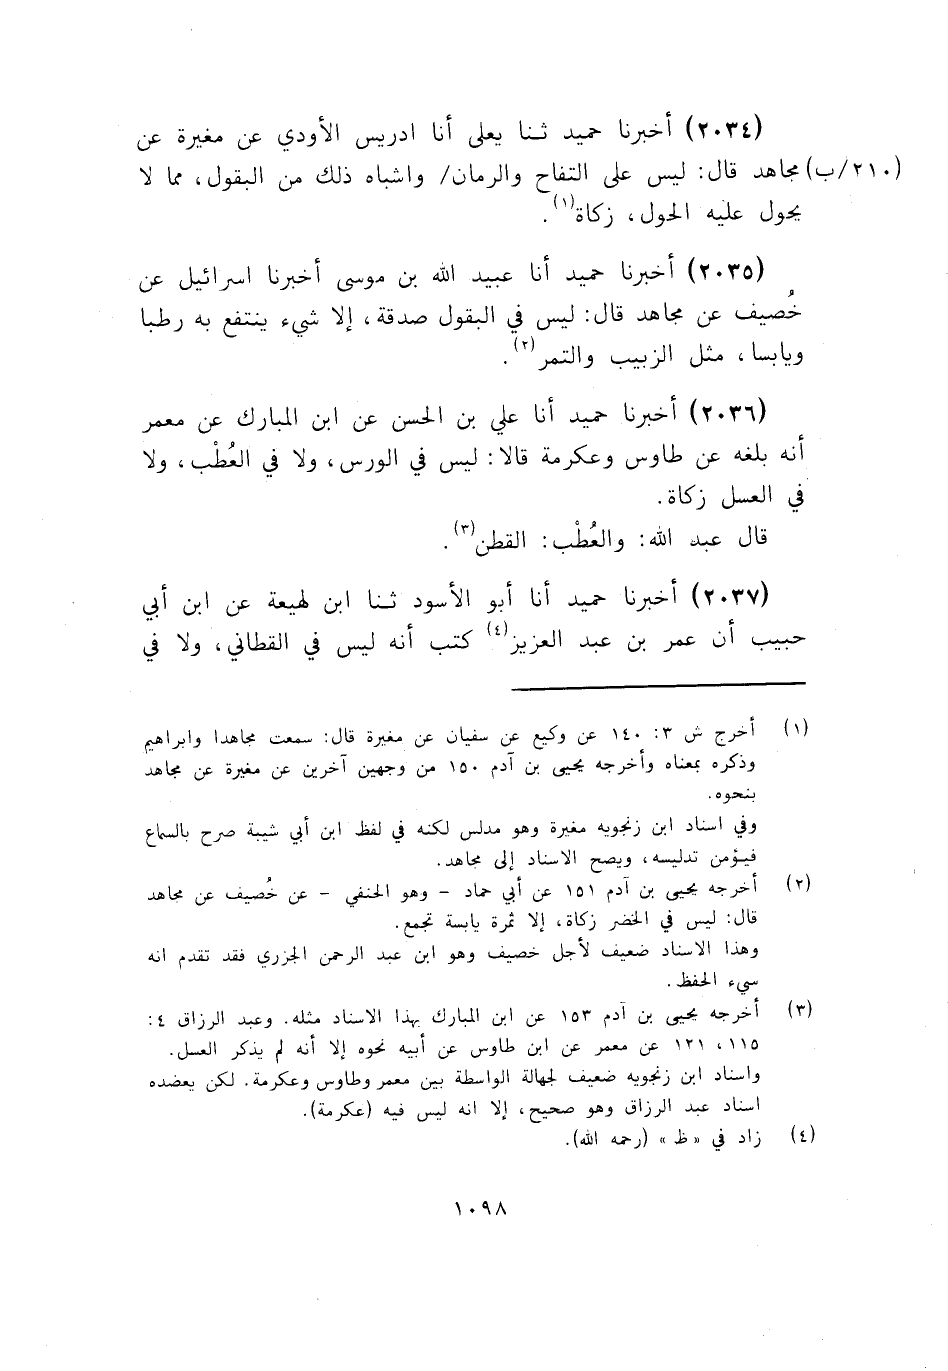 (٢٠٣٤) أخبرنا حميد ثنا يعلى أنا ادريس الأودي عن مغيرة عن
(٢١٠/ب) مجاهد قال: ليس على التفاح والرمان/ واشباه ذلك من البقول، مما لا
يحول عليه الحول، زكاة(١).
(٢٠٣٥) أخبرنا حميد أنا عبيد الله بن موسى أخبرنا اسرائيل عن
خُصيف عن مجاهد قال: ليس في البقول صدقة، إلا شيء ينتفع به رطبا
ويابسا، مثل الزبيب والتمر(٢).
(٢٠٣٦) أخبرنا حميد أنا علي بن الحسن عن ابن المبارك عن معمر
أنه بلغه عن طاوس وعكرمة قالا: ليس في الورس، ولا في العُطْب، ولا
في العسل زكاة.
قال عبد الله: والعُطْب: القطن(٣).
(٢٠٣٧) أخبرنا حميد أنا أبو الأسود ثنا ابن لهيعة عن ابن أبي
حبيب أن عمر بن عبد العزيز(٤) كتب أنه ليس في القطاني، ولا في
(١) أخرج ش ٣: ١٤٠ عن وكيع عن سفيان عن مغيرة قال: سمعت مجاهدا وابراهيم
وذكره بمعناه وأخرجه يحيى بن آدم ١٥٠ من وجهين آخرين عن مغيرة عن مجاهد
بنحوه.
وفي اسناد ابن زنجويه مغيرة وهو مدلس لكنه في لفظ ابن أبي شيبة صرح بالسماع
فيؤمن تدليسه، ويصح الاسناد إلى مجاهد.
(٢) أخرجه يحيى بن آدم ١٥١ عن أبي حماد – وهو الحنفي – عن خُصيف عن مجاهد
قال: ليس في الخضر زكاة، إلا ثمرة يابسة تجمع.
وهذا الاسناد ضعيف لأجل خصيف وهو ابن عبد الرحمن الجزري فقد تقدم انه
سيء الحفظ.
(٣) أخرجه يحيى بن آدم ١٥٣ عن ابن المبارك بهذا الاسناد مثله. وعبد الرزاق ٤:
١١٥، ١٢١ عن معمر عن ابن طاوس عن أبيه نحوه إلا أنه لم يذكر العسل.
واسناد ابن زنجويه ضعيف لجهالة الواسطة بين معمر وطاوس وعكرمة. لكن يعضده
اسناد عبد الرزاق وهو صحيح، إلا انه ليس فيه (عكرمة).
(٤) زاد في «ظ» (رحمه الله).
١٠٩٨